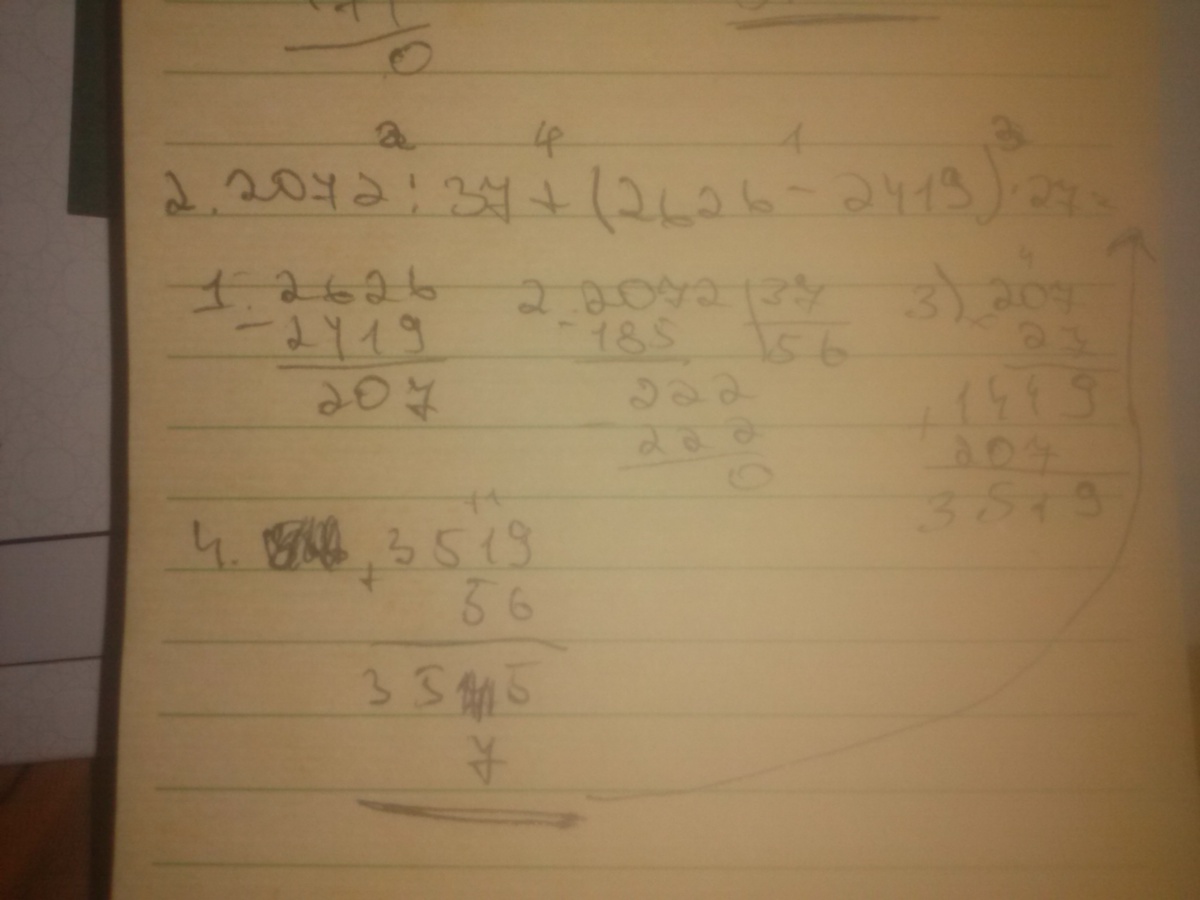 0
2 4 1 3
2. 2072 : 37 + (2626 - 2419) · 27 =
1. 2626 2. 2072 | 37 3) 207
- 2419 - 185 56 × 27
207 222 1449
- 222 + 207
0 3519
4. + 3519
56
35 5
7